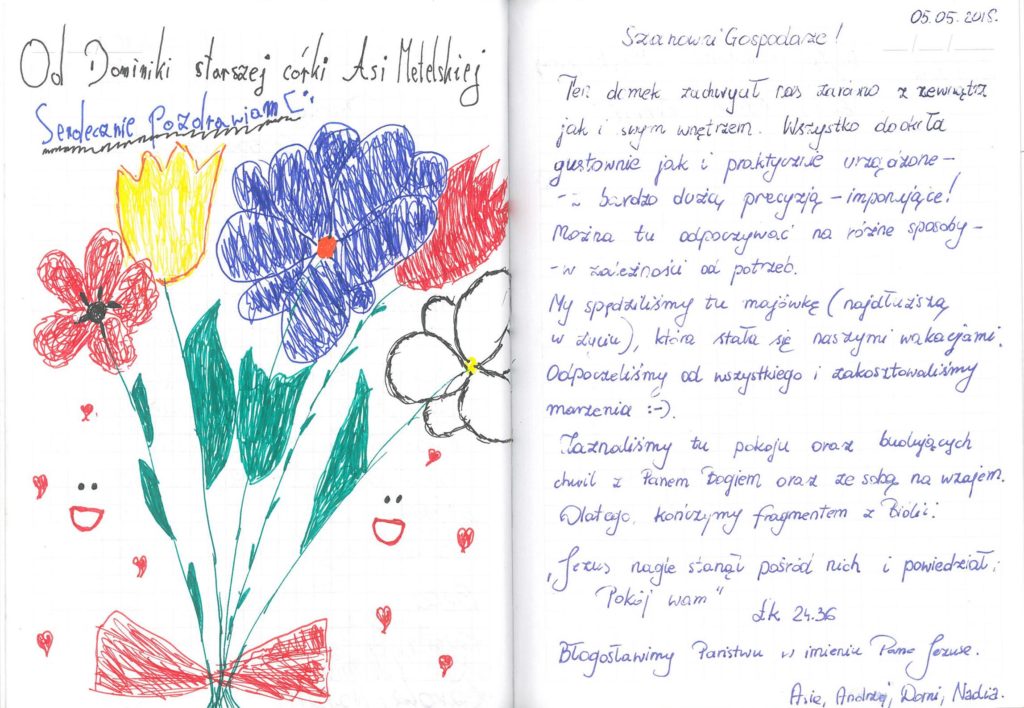 Od Dominiki starszej córki Asi Metelskiej
Serdecznie Pozdrawiam [:
05.05.2018.
Szanowni Gospodarze!
Ten domek zachwycał nas zarówno z zewnątrz
jak i swym wnętrzem. Wszystko dookoła
gustownie jak i praktycznie urządzone-
- z bardzo dużą precyzją - imponujące!
Można tu odpoczywać na różne sposoby-
- w zależności od potrzeb.
My spędziliśmy tu majówkę (najdłuższą
w życiu), która stała się naszymi wakacjami.
Odpoczeliśmy od wszystkiego i zakosztowaliśmy
marzenia :-).
Zaznaliśmy tu pokoju oraz budujących
chwil z Panem Bogiem oraz ze sobą na wzajem.
Dlatego, kończymy fragmentem z Biblii:
„Jezus nagle stanął pośród nich i powiedział:
Pokój wam"
Łk 24.36
Błogosławimy Państwu w imieniu Pana Jezusa.
Asia, Andrzej, Domi, Nadia.